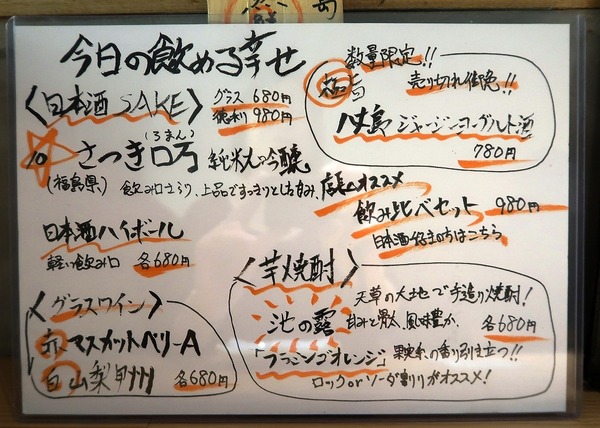 今日の飲める幸せ
〈日本酒 SAKE〉
グラス 680円
徳利 980円
(ろまん)
さつき口万 純米大吟醸
(福島県) 飲み口さらり、上品ですっきりとした
店長オススメ
飲み比べセット 980円
日本酒好きの方はこちら
日本酒ハイボール
軽い飲み口 各680円
〈グラスワイン〉
赤 マスカットベリーA
白 山梨甲州 各680円
数量限定!!
極旨 売り切れ御免!!
八丈島 ジャージーヨーグルト酒
780円
〈芋焼酎〉
天草の大地で手造り焼酎!
池の露 甘みと骨太、風味豊か、各680円
「フラミンゴオレンジ」 果実系の香り引き立つ!!
ロック or ソーダ割りがオススメ!